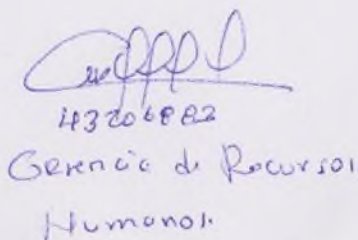 43206882
Gerencia de Recursos
Humanos.